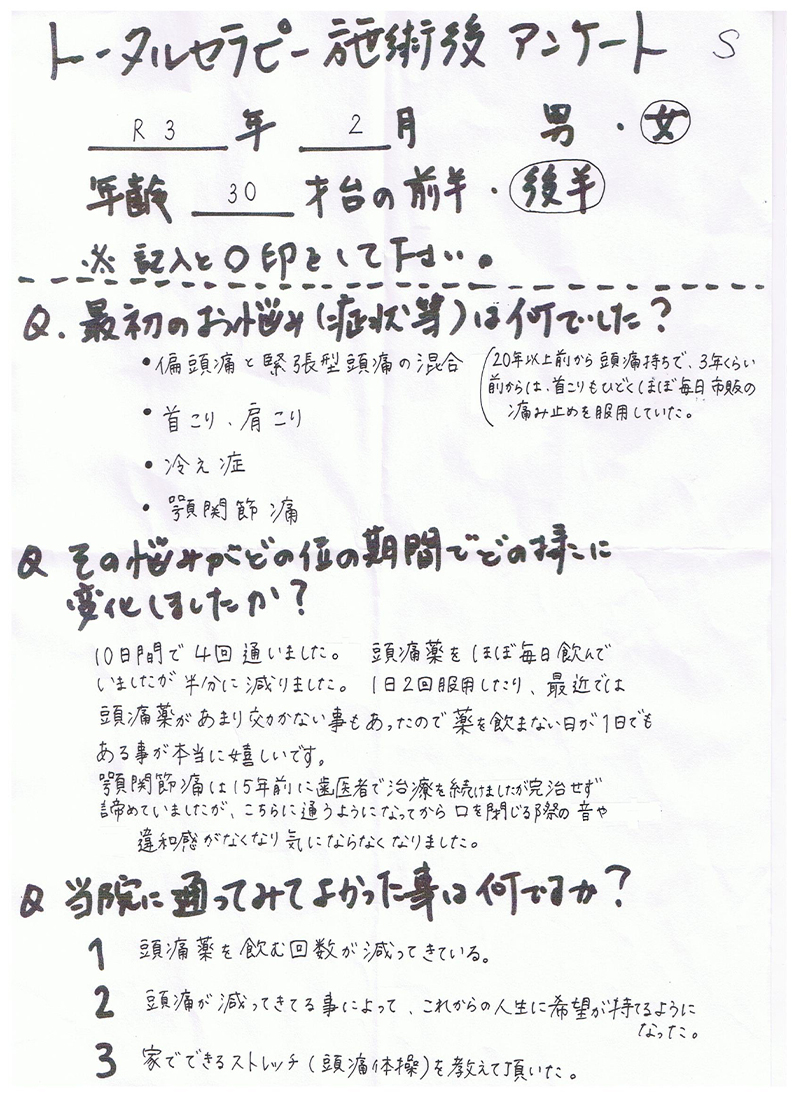 トータルセラピー施術後 アンケート S
R3年 2月 男・女
年齢 30 才台の前半・後半
※記入と〇印をして下さい。
Q. 最初のお悩み(症状等)は何でした?
・偏頭痛と緊張型頭痛の混合 (20年以上前から頭痛持ちで、3年くらい
前からは、首こりもひどくほぼ毎日市販の
痛み止めを服用していた。
・首こり、肩こり
・冷え症
・顎関節痛
Q その悩みがどの位の期間でどの様に
変化しましたか?
10日間で4回通いました。 頭痛薬をほぼ毎日飲んで
いましたが半分に減りました。 1日2回服用したり、最近では
頭痛薬があまり効かない事もあったので薬を飲まない日が1日でも
ある事が本当に嬉しいです。
顎関節痛は15年前に歯医者で治療を続けましたが完治せず
諦めていましたが、こちらに通うようになってから口を閉じる際の音や
違和感がなくなり気にならなくなりました。
Q 当院に通ってみてよかった事は何ですか?
1 頭痛薬を飲む回数が減ってきている。
2 頭痛が減ってきてる事によって、これからの人生に希望が持てるように
なった。
3 家でできるストレッチ(頭痛体操)を教えて頂いた。